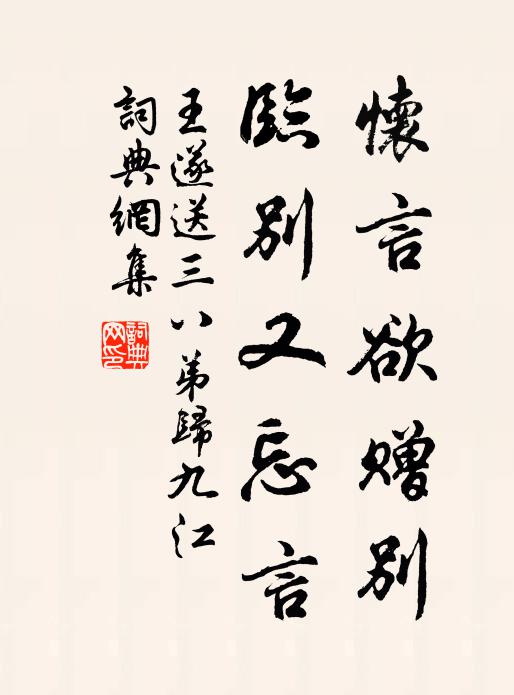 懷言欲贈別
臨別又忘言
王遂送三八弟歸九江
詞典網集
詞典网印